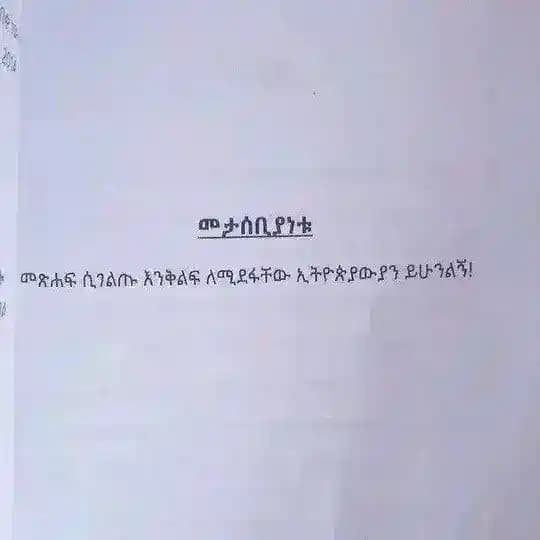 መታሰቢያነቱ
መጽሐፍ ሲገልጡ እንቅልፍ ለሚደፋቸው ኢትዮጵያውያን ይሁንልኝ!